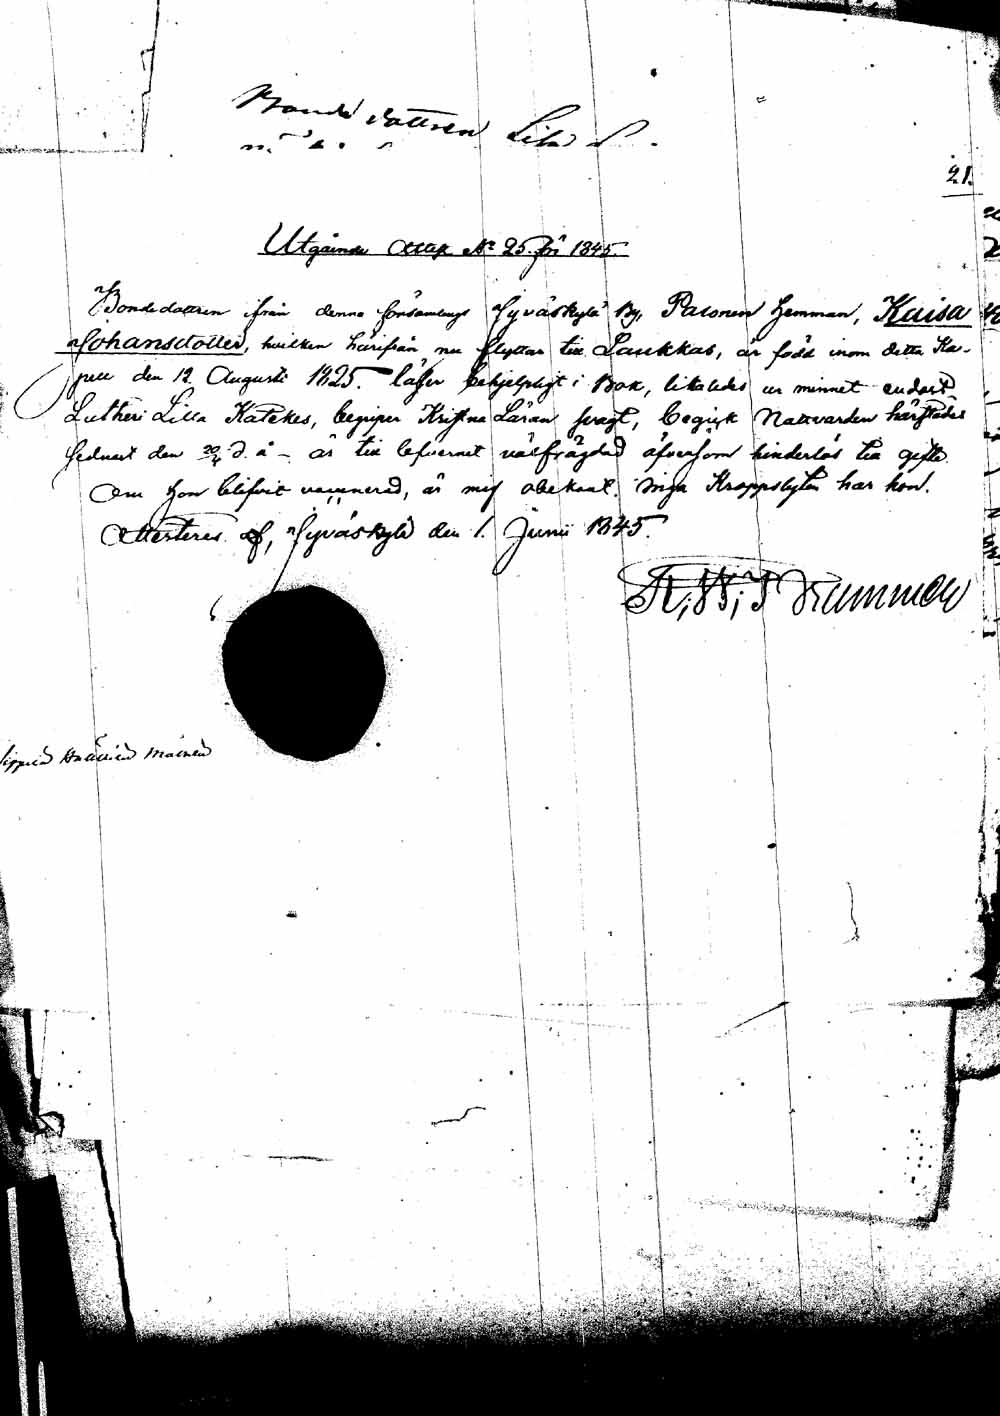 Bonde dottren
21.
Utgående Attest No 25 för 1845.
Bondedottren ifrån denna församlings Jyväskylä By, Palonen Hemman, Kaisa
Johansdotter, hvilken härifrån nu flyttar till Laukkas, är född inom detta Ka-
pell den 12 Augusti 1825. läser behjelpligt i Bok, likaledes ur minnet endast
Lutheri Lilla Katekes, begriper Kristna Läran svagt, begick Nattvarden härstädes
sednast den 20/4 d. å – är till lefvernet välfrägdad äfvensom hinderlös till gifte.
Om hon blifvit vaccinerad, är mig obekant. Inga Kroppslyten har hon.
Attesteras af, Jyväskylä den 1. Junii 1845.